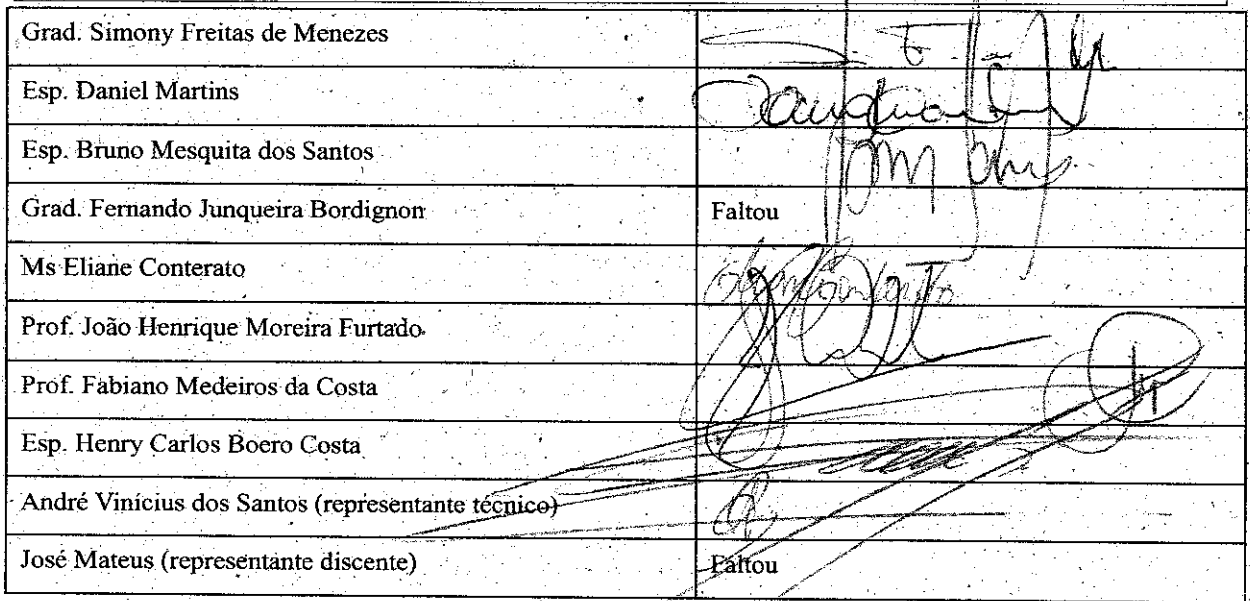 Grad. Simony Freitas de Menezes
Esp. Daniel Martins
Esp. Bruno Mesquita dos Santos
Grad. Fernando Junqueira Bordignon Faltou
Ms Eliane Conterato
Prof. João Henrique Moreira Furtado
Prof. Fabiano Medeiros da Costa
Esp. Henry Carlos Boero Costa
André Vinícius dos Santos (representante técnico)
José Mateus (representante discente) Faltou